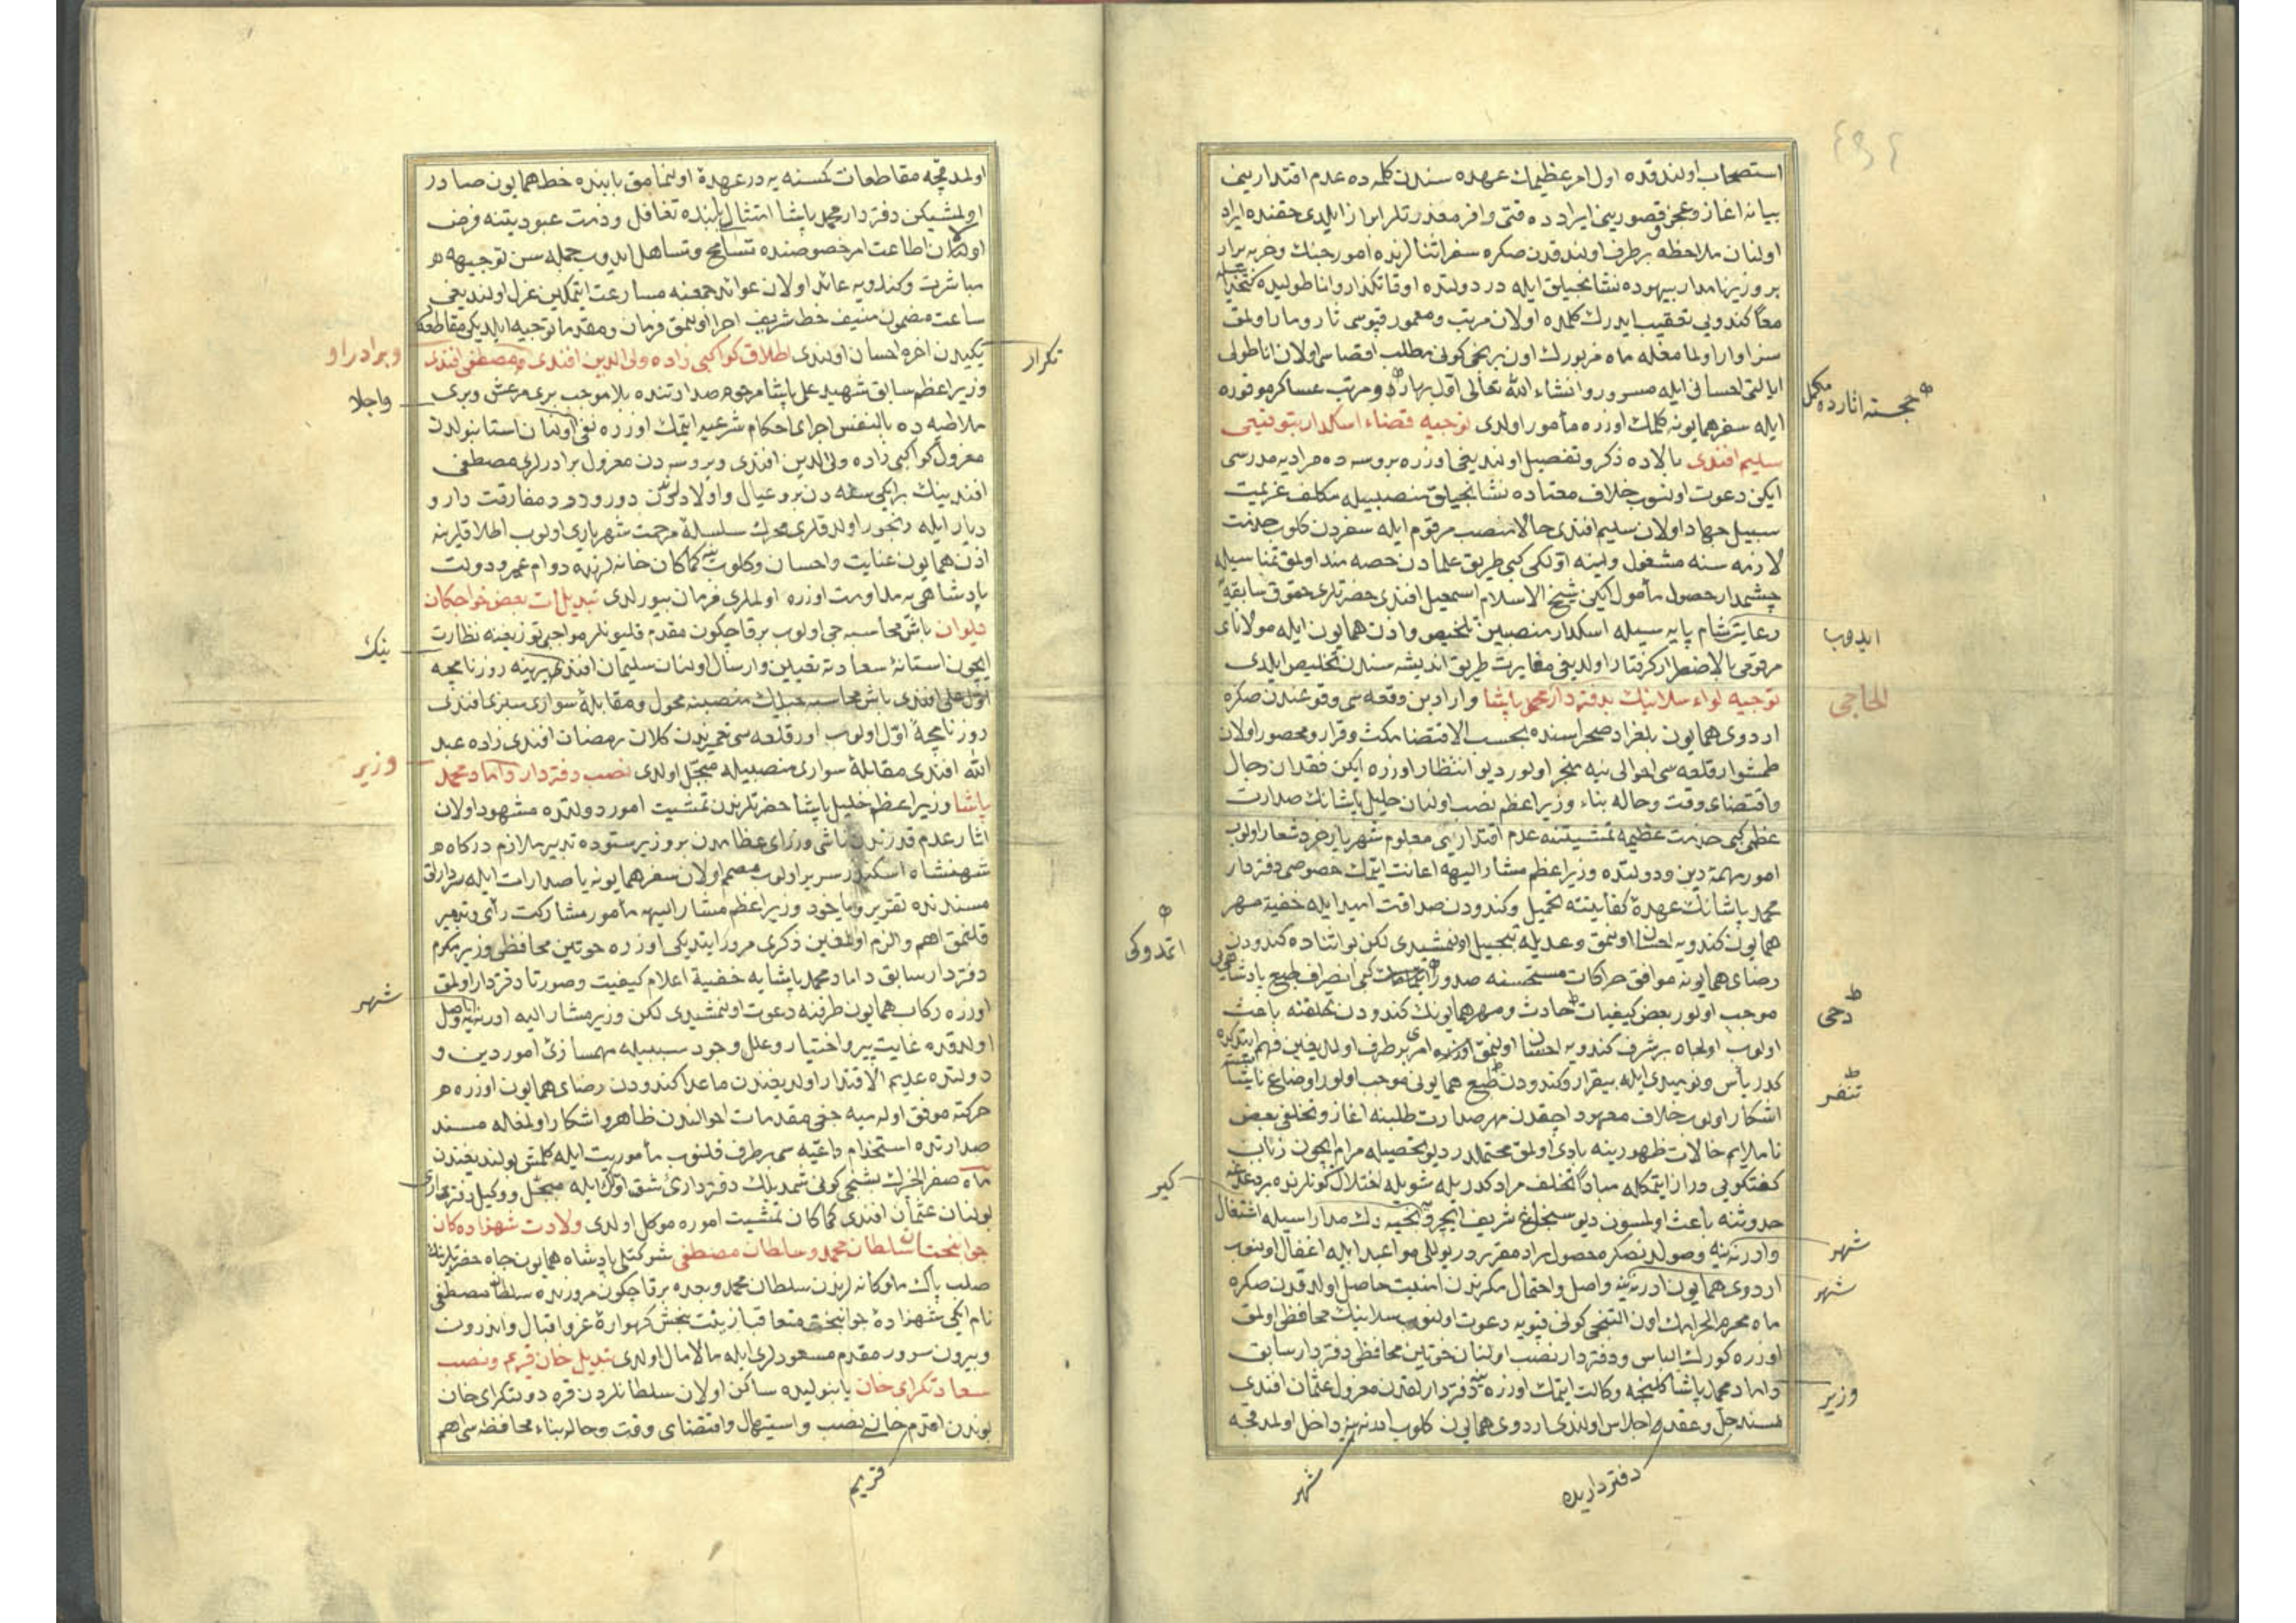 استصحاب اولندقده اول امر عظیمك عهده سندن كلمه ده عدم اقتدارینی
بیانه اغاز و عجز و قصورینی ایرادده قتی وافر معذرتلر ابراز ایلدی حقنده ایراد
اولنان ملاحظه برطرف اولندقدن صكره سفر اثنالرنده امور جنك و حربه برار
بر وزیر نامدار بیهوده نشانجیلق ایله در دولتده اوقاتكذار و اناطولیده
معا كندویی تعقیب ایدرك كلمده اولان مرتب و معمور قپوسی تار و مار اولمق
سزاوار اولمامغله ماه مزبورك اون برنجی كونی مطلب اقصاسی اولان اناطولی
ایالتی احسانی ایله مسرور و انشاء الله تعالی اول بهارده و مرتب عساكر موفوره
ایله سفر همایونه كلمك اوزره مأمور اولدی توجیه قضاء اسكدار بتوقیعی
سلیم افندی بالاده ذكر و تفصیل اولندیغی اوزره بروسه ده مرادیه مدرسی
ایكن دعوت اولنوب خلاف معتاده نشانجیلق منصبیله مكلف عزیمت
سبیل جهاد اولان سلیم افندی حالا منصب مرقوم ایله سفردن كلوب خدمت
لازمه سنه مشغول و ینه اولكی كبی طریق علمادن حصه مند اولمق تمناسیله
چشمدار حصول مأمول ایكن شیخ الاسلام اسمعیل افندی حضرتلری حقوق سابقه یی
رعایة شام پایه سیله اسكدار منصبین تلخیص و اذن همایون ایله مولانای
مرقومی بالاضطرار كرفتار اولدیغی مغایرت طریق اندیشه سندن تخلیص ایلدی
توجیه لواء سلانیك بدفتردار محمد پاشا وارادین وقعه سی وقوعندن صكره
اردوی همایون بلغراد صحراسنده بحسب الاقتضا مكث و قرار و محصور اولان
طمشوار قلعه سی احوالی نیه منجر اولور دیو انتظار اوزره ایكن فقدان رجال
و اقتضای وقت و حاله بناء وزیر اعظم نصب اولنان خلیل پاشانك صدارت
عظمی كبی خدمت عظیمه تمشیتنه عدم اقتداریی معلوم شهریار خرد شعار اولوب
امور مهمۀ دین و دولتده وزیر اعظم مشار الیهه اعانت ایتمك خصوصی دفتردار
محمد پاشانك عهدۀ كفایتنه تحمیل و كندودن صداقت امید ایله خفیة مهر
همایون كندویه احسان اولنمق وعدیله تبجیل اولنمشیدی لكن بو اثناده كندودن
رضای همایونه موافق حركات مستحسنه صدور كبی انصراف طبع پادشاهی یی
موجب اولور بعض كیفیات حادث و مهر همایونك كندودن تخلفنه باعث
اولوب اولجاه برشرف كندویه احسان اولنمق امری برطرف اولدیغین فهم
كدر یأس و نومیدی ایله بیقرار و كندودن طبع همایونی موجب اولور اوضاع
اشكار اولوب خلاف معهود اچقدن مهر صدارت طلبنه اغاز و تخلفی بعض
ناملایم حالات ظهورینه بادی اولمق محتملدر دیو تحصیله مرام ایچون زبان
كفتكویی دراز ایتمكله مبادا تخلف مراد كدریله شویله اختلال كونلرنده
حدوثنه باعث اولمسون دیو سنجاغ شریف مدار اسیله اشتغال
و ادرنه یه وصولدنصكره محصول مراد مقرردر یوللی مواعید ایله اغفال اولنوب
اردوی همایون ادرنه یه واصل و احتمال مكرندن امنیت حاصل اولدقدن صكره
ماه محرم الحرامك اون التنجی كونی قپویه دعوت اولنوب سلانیك محافظی اولمق
اوزره كورك الباس و دفتردار نصب اولنان خوتین محافظی دفتردار سابق
داماد محمد پاشا كلنجه وكالت ایتمك اوزره دفتردارلقدن معزول عثمان افندی
مسند حل و عقده اجلاس اولندی اردوی همایون كلوب ادرنه یه داخل اولمدقچه
خجسته اثارده مكمل
ایدوب
الحاجی
دخی
تنفر
شهر
شهر
وزیر
اتمدوكی
كیر
دفترداریده
شهر
اولمدقچه مقاطعات كمسنه یه در عهدۀ اولنمامق بابنده خط همایون صادر
اولمشیكن دفتردار محمد پاشا امتثال بابنده تغافل و ذمت عبودیتنه فرض
اولان اطاعت امر خصوصنده تسامح و تساهل ایدوب جمله سن توجیهه
مباشرت و كندویه عائد اولان عوائد جمعنه مسارعت ایتمكین عزل اولندیغی
ساعت مضمون منیف خط شریف اجرا اولنمق فرمان و مقدما توجیه ایلدیكی مقاطعه
یكیدن اخره احسان اولندی اطلاق كواكبی زاده ولی الدین افندی و مصطفی افندی
وزیر اعظم سابق شهید علی پاشا مرحوم صدارتنده بلا موجب بری مرعش و بری
ملاطیه ده بالنفس اجرای احكام شرعیه ایتمك اوزره نفی اولنان استانبولدن
معزول كواكبی زاده ولی الدین افندی و بروسه دن معزول برادرلری مصطفی
افندینك بر ایكی سنه دن برو عیال و اولادلرندن دور و درد مفارقت دار و
دیار ایله رنجور اولدقلری محرك سلسلۀ مرحمت شهریاری اولوب اطلاقلرینه
اذن همایون عنایت و احسان و كلوب ینه كماكان خانه لرنده دوام عمر و دولت
پادشاهی یه مداومت اوزره اولملری فرمان بیورلدی تبدیلات بعض خواجكان
دیوان باش محاسبه جی اولوب برقاچكون مقدم قلیونلر مواجبی توزیعنه نظارت
ایچون استانۀ سعادته تعیین و ارسال اولنان سلیمان افندی یرینه روزنامچه
اول علی افندی باش محاسبه جیلك منصبنه محول و مقابلۀ سواری سبزی افندی
روزنامچۀ اول اولوب اور قلعه سی كلان رمضان افندی زاده عبد
الله افندی مقابلۀ سواری منصبیله مبجل اولدی نصب دفتردار داماد محمد
پاشا وزیر اعظم خلیل پاشا حضرتلرندن تمشیت امور دولتده مشهود اولان
اثار عدم قدرتدن ناشی وزرای عظامدن بر وزیر ستوده تدبیر ملازم دركاه
شهنشاه اسكندر سریر اولوب مصمم اولان سفر همایونه یا صدارت ایله
مسندنده تقریر و یاخود وزیر اعظم مشار الیهه مأمور مشاركت رأی و تدبیر
قلنمق اهم و الزم اولمغین ذكری مرور ایتدیكی اوزره خوتین محافظی وزیر مكرم
دفتردار سابق داماد محمد پاشایه خفیة اعلام كیفیت و صورتا دفتردار اولمق
اوزره ركاب همایون طرفنه دعوت اولنمشیدی لكن وزیر مشار الیه ادرنه یه واصل
اولدقده غایت پیر و اختیار و علل وجود سببیله مهمسازئ امور دین و
دولتده عدیم الاقتدار اولدیغندن ماعدا كندودن رضای همایون اوزره هر
حركته موفق اوله میه جغی مقدمات احوالندن ظاهر و اشكار اولمغله مسند
صدارتده استخدام داعیه سی برطرف قلنوب مأموریت ایله كلمش بولندیغندن
ماه صفر الخیرك بشنجی كونی شمدیلك دفتردارئ شق اول ایله مبجل و وكیل دفترداری
بولنان عثمان افندی كماكان تمشیت اموره موكل اولدی ولادت شهزاده كان
جوانبختان سلطان محمد و سلطان مصطفی شوكتلی پادشاه همایون جاه حضرتلرینك
صلب پاك ملوكانه لرندن سلطان محمد و بعده برقاچكون مرورنده سلطان مصطفی
نام ایكی شهزادۀ جوانبخت متعاقبا زینت بخش كهوارۀ عز و اقبال و اندرون
و بیرون سرور مقدم مسعودلری ایله مالامال اولدی تبدیل خان قریم و نصب
سعادتكرای خان یانبولیده ساكن اولان سلطانلردن قره دولتكرای خان
بوندن اقدم خان نصب و استیهال و اقتضای وقت و حاله بناء محافظه سی اهم
تكرار
و برادر او
واجلا
ینك
وزیر
شهر
قریم